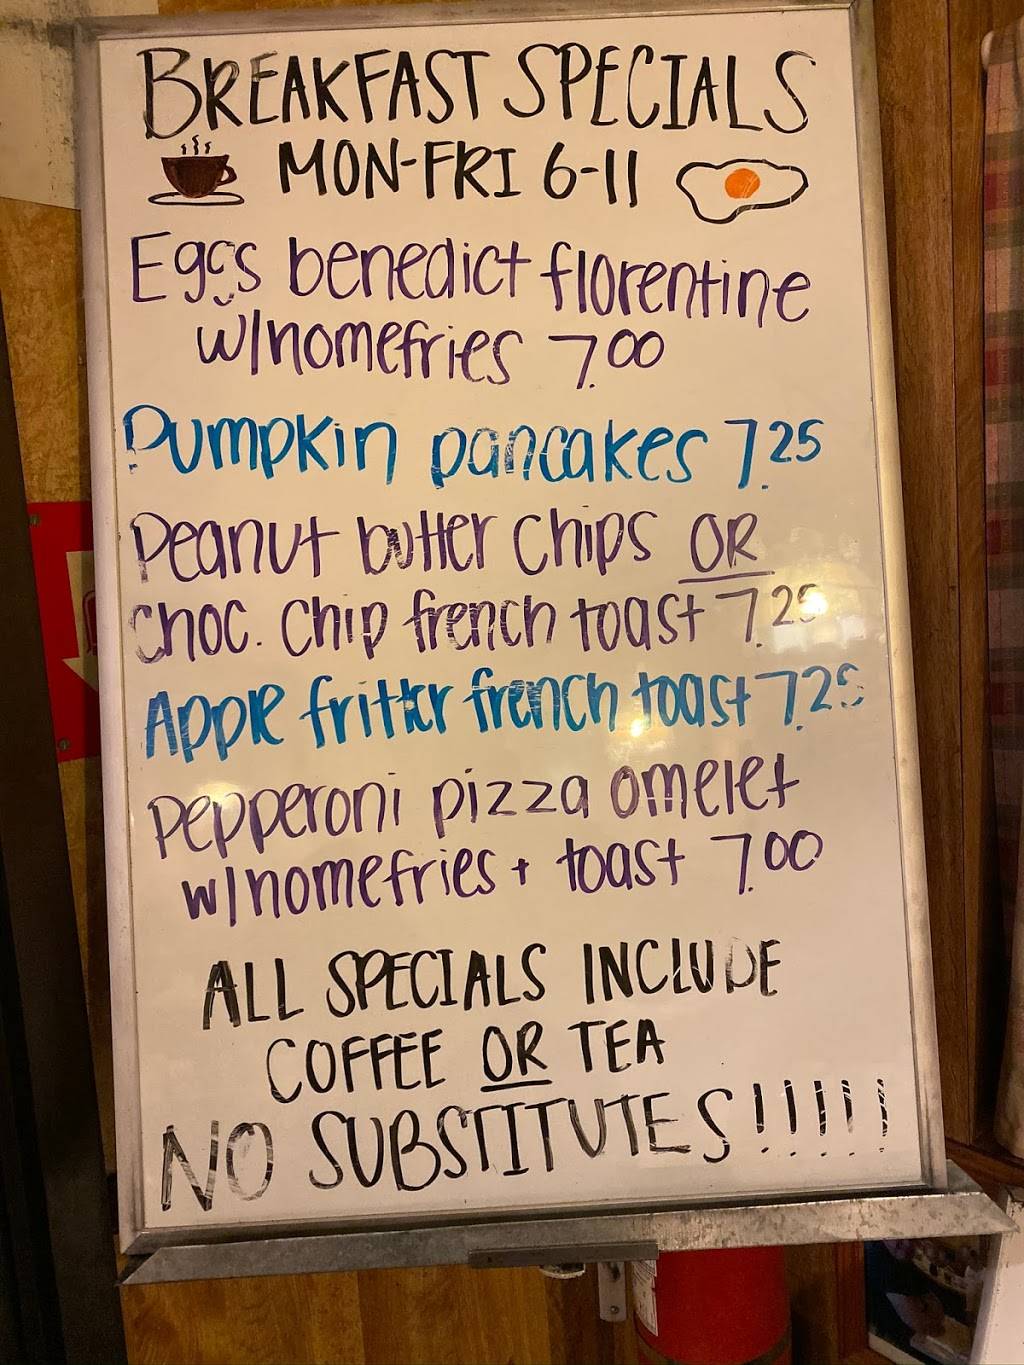 BREAKFAST SPECIALS
MON-FRI 6-11
Eggs benedict florentine
w/homefries 7.00
Pumpkin pancakes 7.25
Peanut butter chips OR
choc. chip french toast 7.25
Apple fritter french toast 7.25
Pepperoni pizza omelet
w/homefries + toast 7.00
ALL SPECIALS INCLUDE
COFFEE OR TEA
NO SUBSTITUTES!!!!!